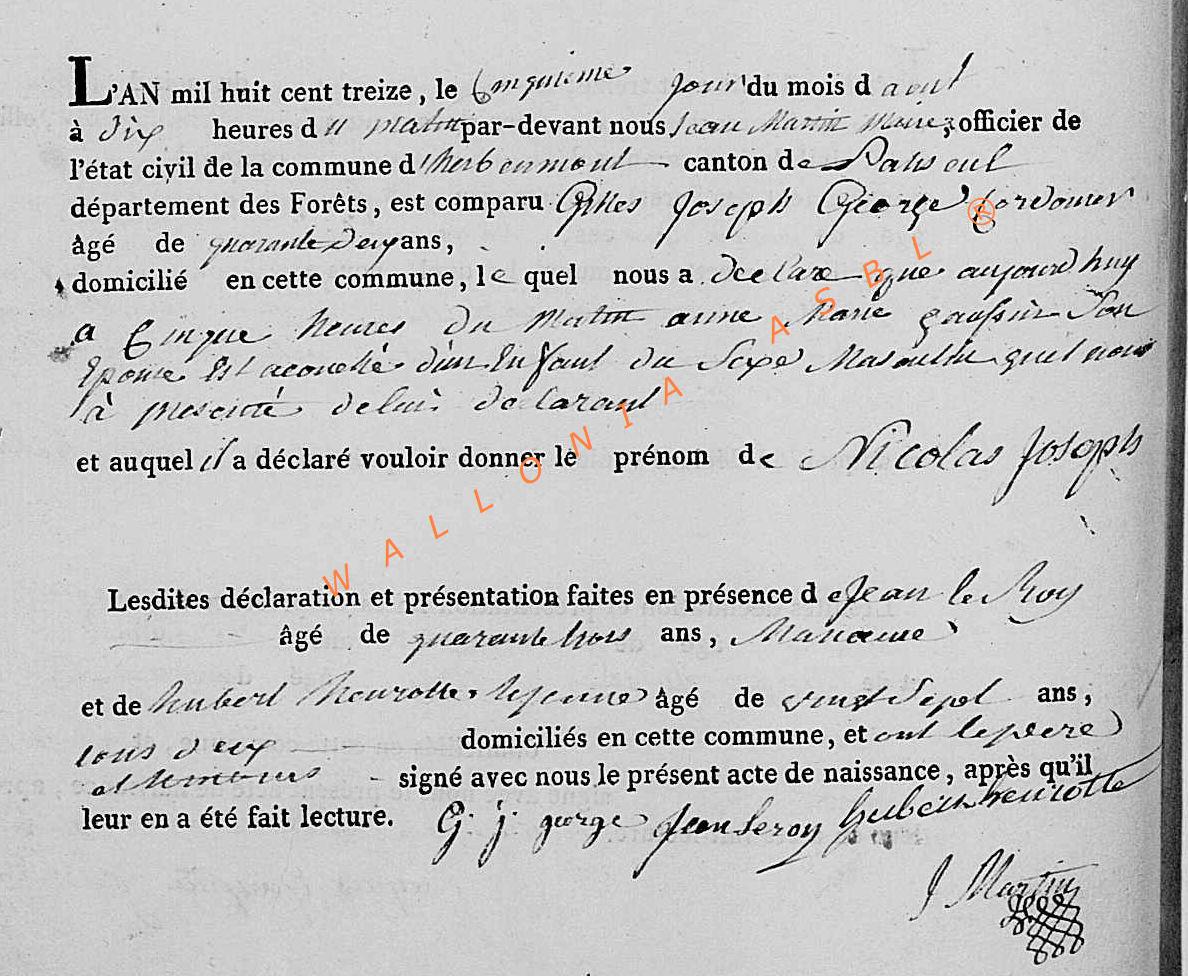 L'AN mil huit cent treize, le Cinquieme jour du mois d aout
à dix heures d u matin par-devant nous Jean Martin Maire, officier de
l'état civil de la commune d'herbeumont canton de Paliseul
département des Forêts, est comparu Gilles Joseph George Cordonier
âgé de quarante deux ans,
domicilié en cette commune, le quel nous a declare que aujourd huy
a Cinque heures du Matin anne Marie gaussin Son
Epouse Est acouchée d'un Enfant du Sexe Masculin quil nous
à presenté declarant
et auquel il a déclaré vouloir donner le prénom de Nicolas Joseph
Lesdites déclaration et présentation faites en présence de Jean le Roy
âgé de quarante trois ans,
et de hubert heurotte âgé de vingt Sept ans,
tous deux domiciliés en cette commune, et ont le pere
et temoins signé avec nous le présent acte de naissance, après qu'il
leur en a été fait lecture. G. j. george Jean Leroy hubert heurotte
J Martin
WALLONIA ASBL ®